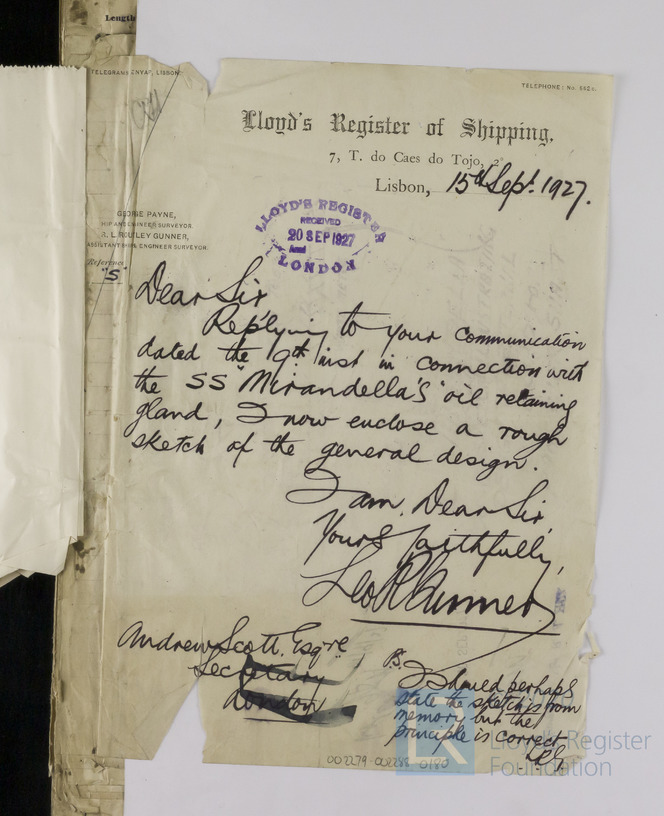 Length
TELEGRAMS
LISBON
TELEPHONE: No.
Lloyd's Register of Shipping,
7, T. do Caes do Tojo, 2º
Lisbon, 15th Sept. 1927.
LLOYD'S REGISTER
RECEIVED
20 SEP 1927
LONDON
GEORGE PAYNE,
SHIP AND ENGINEER SURVEYOR.
GUNNER,
ASSISTANT SHIP & ENGINEER SURVEYOR.
Reference
"S"
Dear Sir
Replying to your communication
dated the 9th inst in connection with
the SS "Mirandella's" oil retaining
gland, I now enclose a rough
sketch of the general design.
I am, Dear Sir,
Yours faithfully,
Gunner
Andrew Scott. Esqre
Secretary
London
P.S. I should perhaps
state the sketch is from
memory but the
principle is correct
002279-002288-0180
LR
Lloyd's Register
Foundation